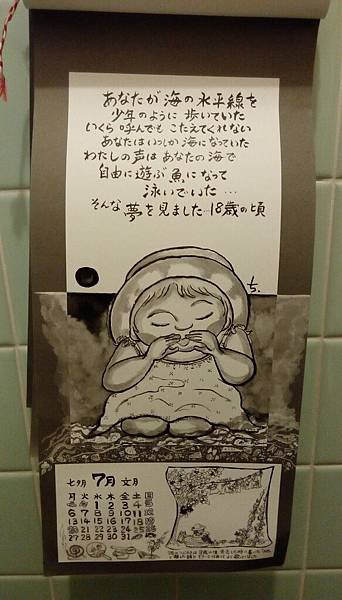 あなたが海の水平線を
少年のように歩いていた
いくら呼んでもこたえてくれない
あなたはいつしか海になっていた
わたしの声はあなたの海で
自由に遊ぶ魚になって
泳いでいた…
そんな夢を見ました…18歳の頃
ち.
七夕月 7月 文月
月 火 水 木 金 土 日
1 2 3 4
6 7 8 9 10 11
13 14 15 16 17 18
21 22 23 24 25
27 28 29 30 31